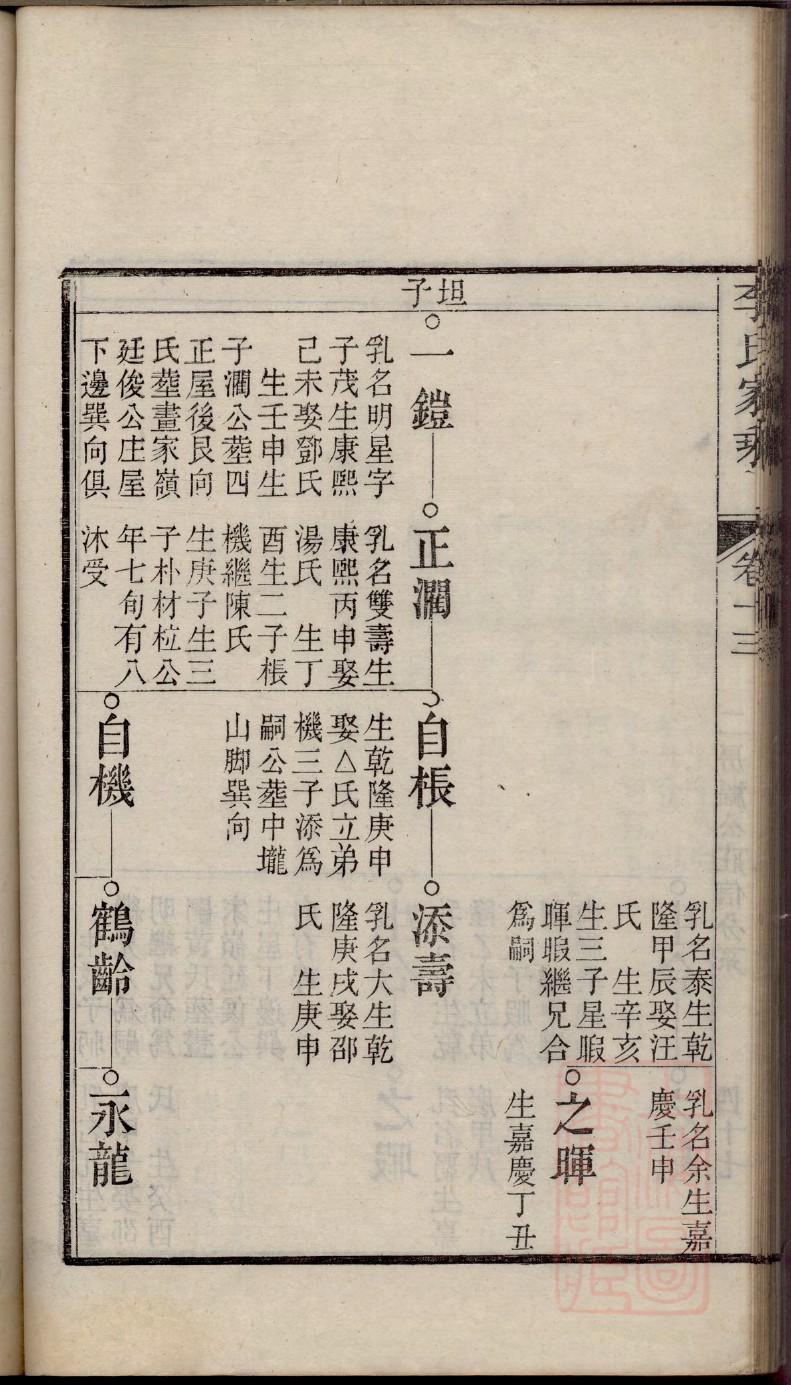 李氏家乘
卷十三
坦子
乳名泰生乾
隆甲辰娶汪
氏　生辛亥
生三子星暇
暉暇繼兄合
爲嗣
乳名余生嘉
慶壬申
之暉
生嘉慶丁丑
一鎧
乳名明星字
子茂生康熙
己未娶鄧氏
生壬申生
子潤公塟四
正屋後艮向
氏塟畫家嶺
廷俊公庄屋
下邊巽向俱
正潤
乳名雙壽生
康熙丙申娶
湯氏　生丁
酉生二子棖
機繼陳氏
生庚子生三
子朴材柆公
年七旬有八
沐受
自棖
生乾隆庚申
娶△氏立弟
機三子添爲
嗣公塟中壠
山脚巽向
添壽
乳名大生乾
隆庚戌娶邵
氏　生庚申
自機
鶴齡
永龍